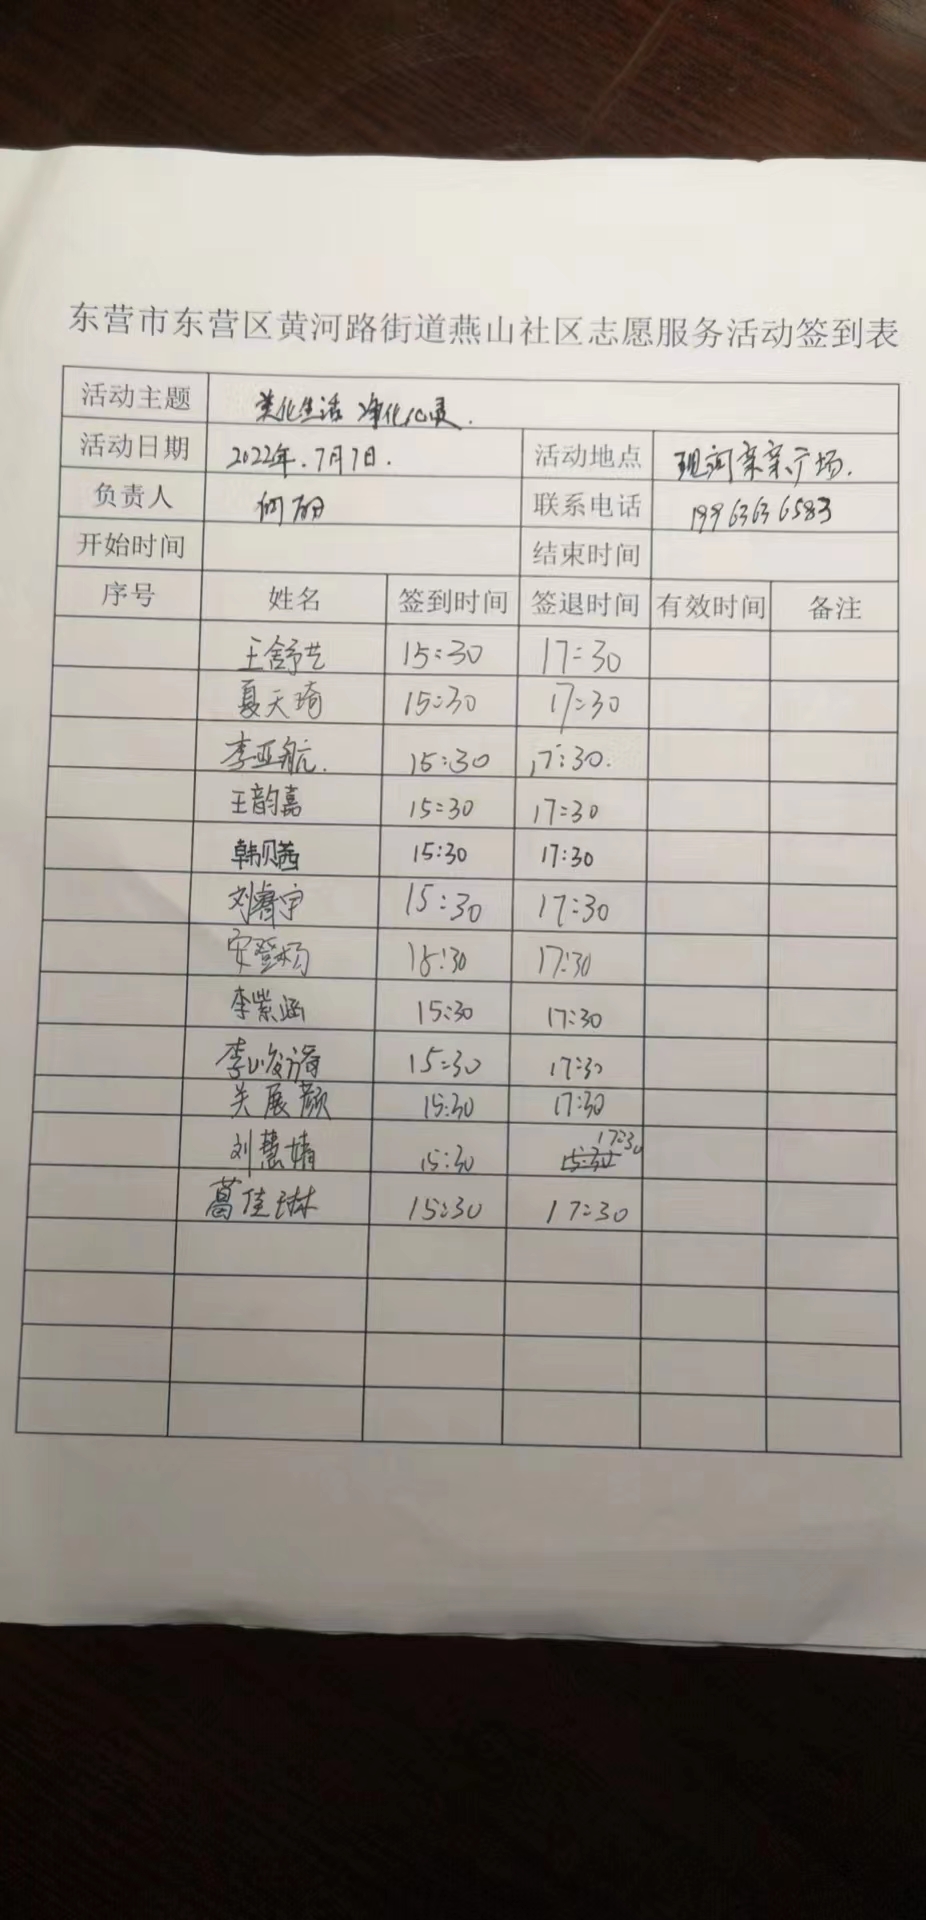 东营市东营区黄河路街道燕山社区志愿服务活动签到表
活动主题 美化生活 净化心灵.
活动日期 2022年.7月7日. 活动地点 现河亲亲广场.
负责人 何丽 联系电话 19963636583
开始时间 结束时间
序号 姓名 签到时间 签退时间 有效时间 备注
王舒艺 15:30 17:30
夏天琦 15:30 17:30
李亚航. 15:30 17:30.
王韵嘉 15:30 17:30
韩贝茜 15:30 17:30
刘睿宇 15:30 17:30
安登杨 15:30 17:30
李紫涵 15:30 17:30
李峻 15:30 17:30
关展颜 15:30 17:30
17:30
刘慧婧 15:30 15:30
葛佳琳 15:30 17:30